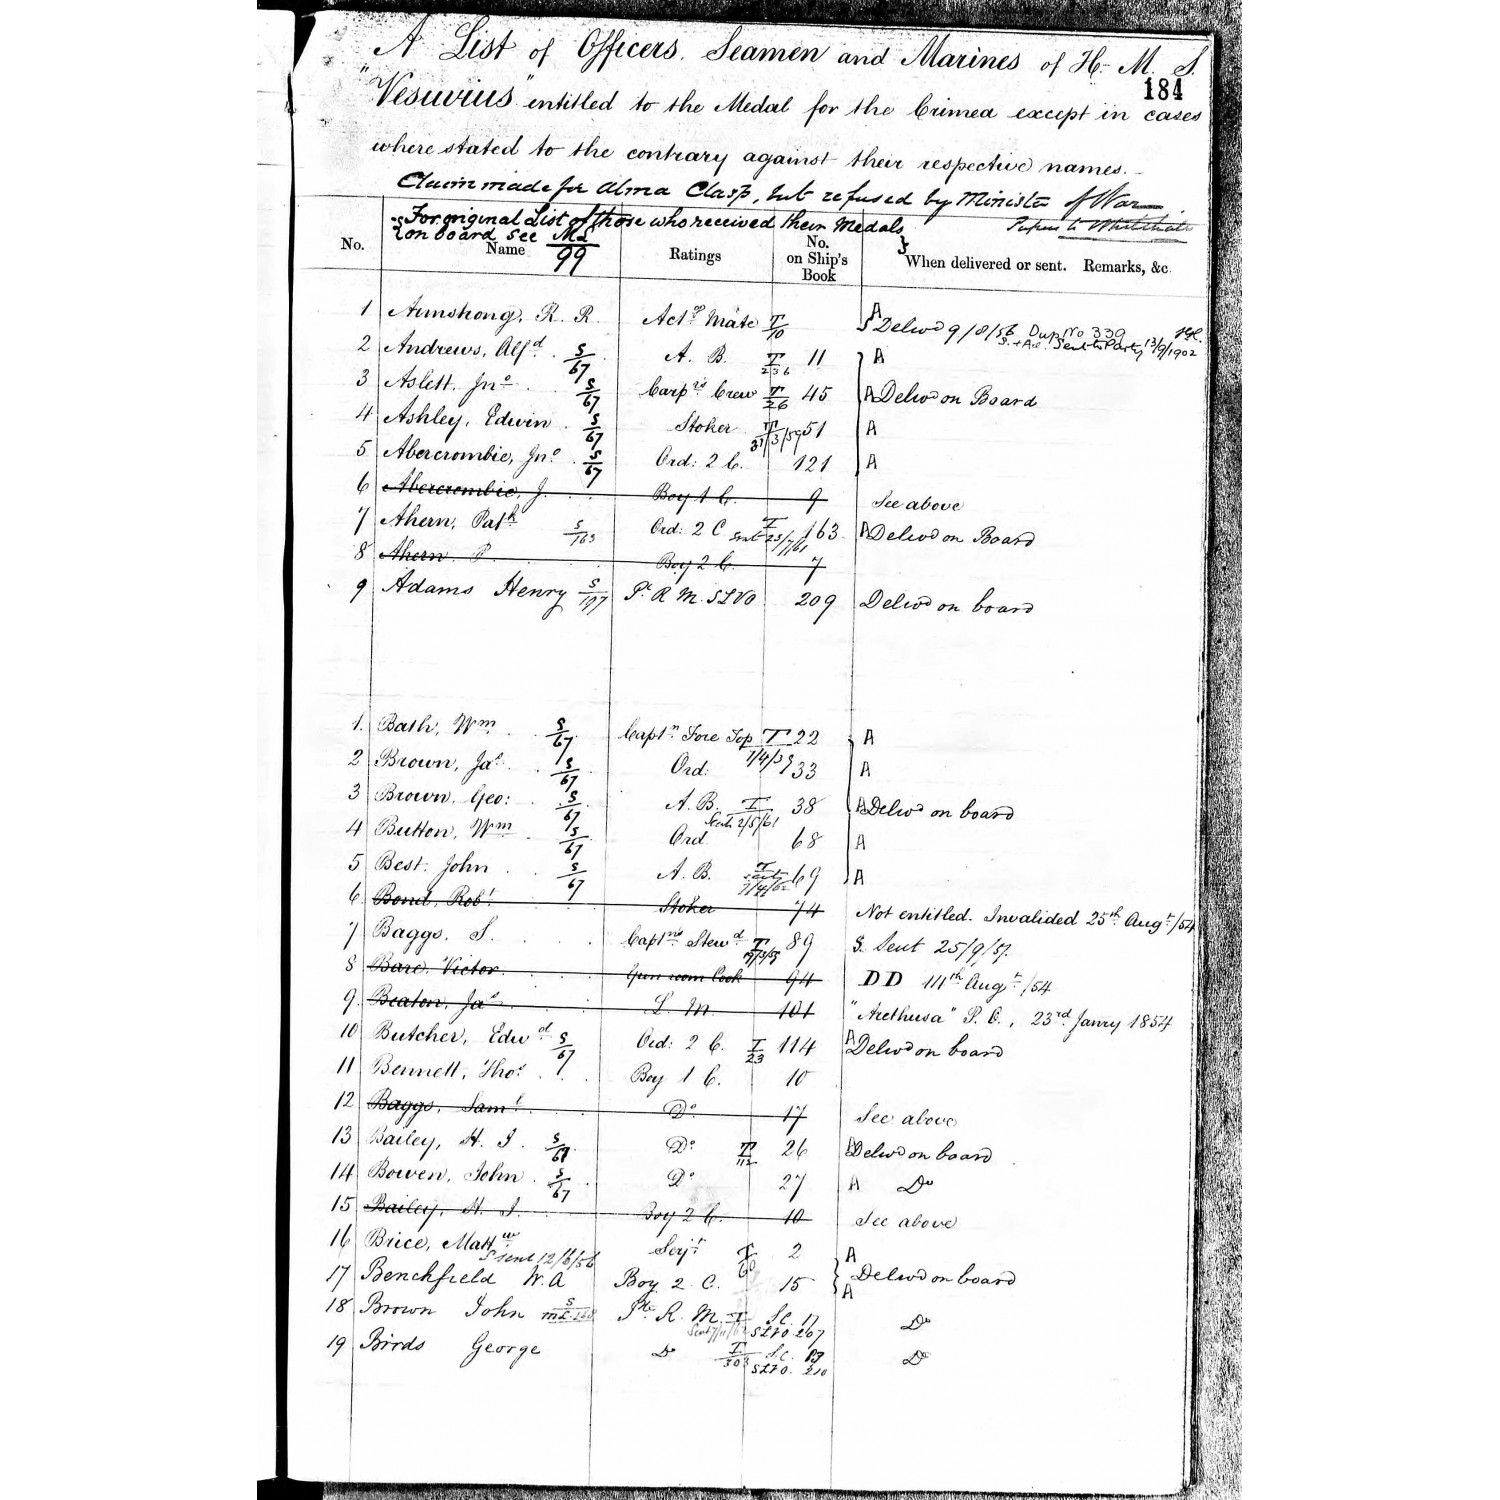 A List of Officers, Seamen and Marines of H. M. S.
184
"Vesuvius" entitled to the Medal for the Crimea except in cases
where stated to the contrary against their respective names.
Claim made for Alma Clasp, but refused by Minister of War.
Papers to Whitehall
For original List of those who received their Medals
on board see Md/99
No. Name Ratings No. on Ship's Book When delivered or sent. Remarks, &c.
1 Armstrong, R. R. Actg Mate T/10 A S Delivd 9/8/56 Dup No 339 Sent to Party 13/9/1902
2 Andrews, Alfd S/67 A. B. T/236 11 A
3 Aslett, Jno S/67 Carprs Crew T/26 45 A Delivd on Board
4 Ashley, Edwin S/67 Stoker T/31/3/59 51 A
5 Abercrombie, Jno S/67 Ord: 2 C. 121 A
6 Abercrombie, J. Boy 1 C. 9 See above
7 Ahern, Patk S/163 Ord: 2 C T Sent 23/7/61 163 A Delivd on Board
8 Ahern P Boy 2 C. 7
9 Adams Henry S/197 Pt R M. SLVO 209 Delivd on board
1. Bath, Wm S/67 Captn Fore Top T/7/4/59 22 A
2 Brown, Jas S/67 Ord: 33 A
3 Brown, Geo: S/67 A. B. T Sent 2/5/61 38 A Delivd on board
4 Button, Wm S/67 Ord 68 A
5 Best, John S/67 A. B. T 69 A
6 Bond, Robt Stoker 74 Not entitled. Invalided 25th Augt/54
7 Baggs. S. Captns Stewd T 89 S. Sent 25/9/57.
8 Bare, Victor Gun room Cook 94 DD 11th Augt/54
9. Beaton, Jas L. M. 101 "Arethusa" P. O., 23rd Janry 1854
10 Butcher, Edwd S/67 Ord: 2 C. T/23 114 A Delivd on board
11 Bennett, Thos Boy 1 C. 10
12 Baggs, Saml Do 17 See above
13 Bailey, H. J. S/67 Do T/112 26 A Delivd on board
14 Bowen, John S/67 Do 27 A Do
15 Bailey, H. J. Boy 2 C. 10 See above
16 Brice, Mattw Serjt T/60 2 A
S sent 12/6/56
17 Benchfield W. A Boy 2 C. 15 A Delivd on board
18 Brown John S Pte R. M. T SC. 17 SLVO 267 Do
19 Birds George Do T/303 SC. SLVO. 210 Do